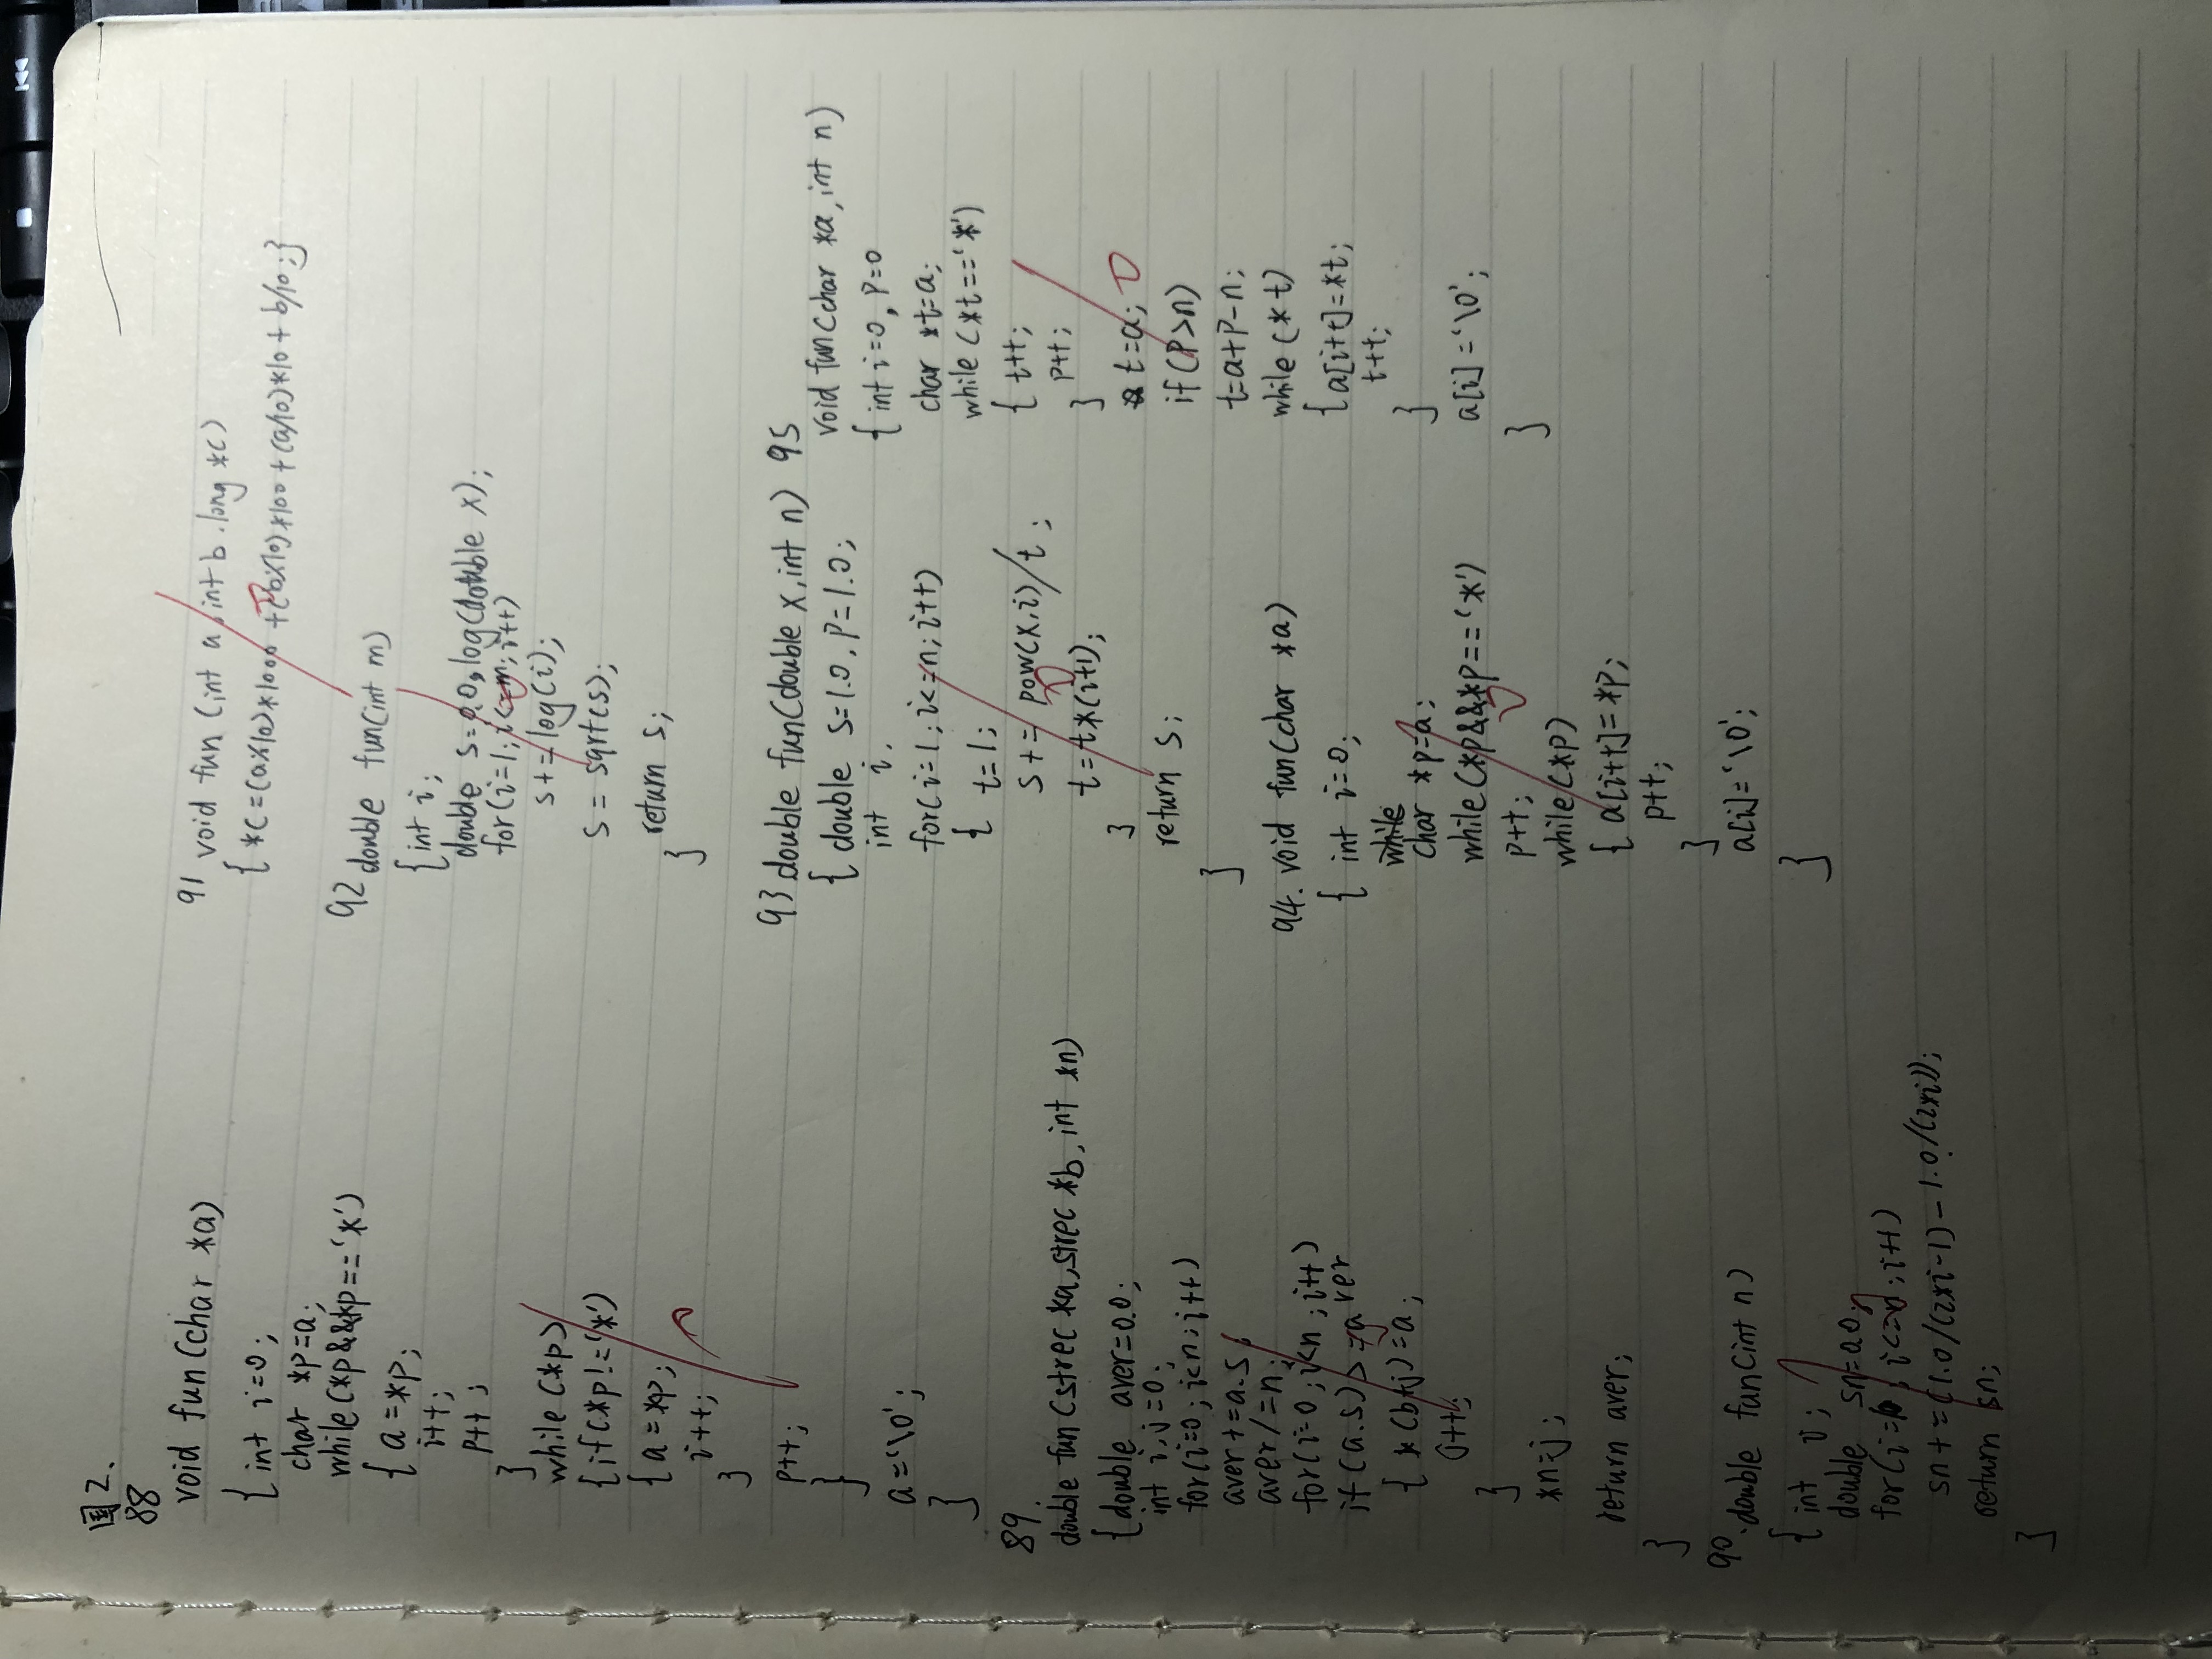 国2.
88
void fun(char *a)
{ int i=0;
char *p=a;
while(*p&&*p=='*')
{ a=*p;
i++;
p++;
}
while(*p)
{ if(*p!='*')
{ a=*p;
i++;
}
p++;
}
a='\0';
}
89.
double fun(strec *a,strec *b, int *n)
{ double aver=0.0;
int i,j=0;
for(i=0;i<n;i++)
aver+=a.s
aver/=n;
for(i=0;i<n;i++)
if(a.s)>=aver
{ *(b+j)=a;
j++;
}
*n=j;
return aver;
}
90. double fun(int n)
{ int i;
double sn=0.0;
for(i=1;i<=n;i++)
sn+=(1.0/(2*i-1)-1.0/(2*i));
return sn;
}
91 void fun(int a,int b.long *c)
{ *c=(a%10)*1000+(b%10)*100+(a/10)*10+b/10;}
92 double fun(int m)
{ int i;
double s=0.0,log(double x);
for(i=1;i<=m;i++)
s+=log(i);
s=sqrt(s);
return s;
}
93 double fun(double x,int n)
{ double s=1.0,p=1.0;
int i,
for(i=1;i<=n;i++)
{ t=1;
s+=pow(x,i)/t;
t=t*(i+1);
}
return s;
}
94. void fun(char *a)
{ int i=0;
while
char *p=a;
while(*p&&*p=='*')
p++;
while(*p)
{ a[i++]=*p;
p++;
}
a[i]='\0';
}
95
void fun(char *a,int n)
{ int i=0,p=0
char *t=a;
while(*t=='*')
{ t++;
p++;
}
t=a;
if(p>n)
t=a+p-n;
while(*t)
{ a[i++]=*t;
t++;
}
a[i]='\0';
}